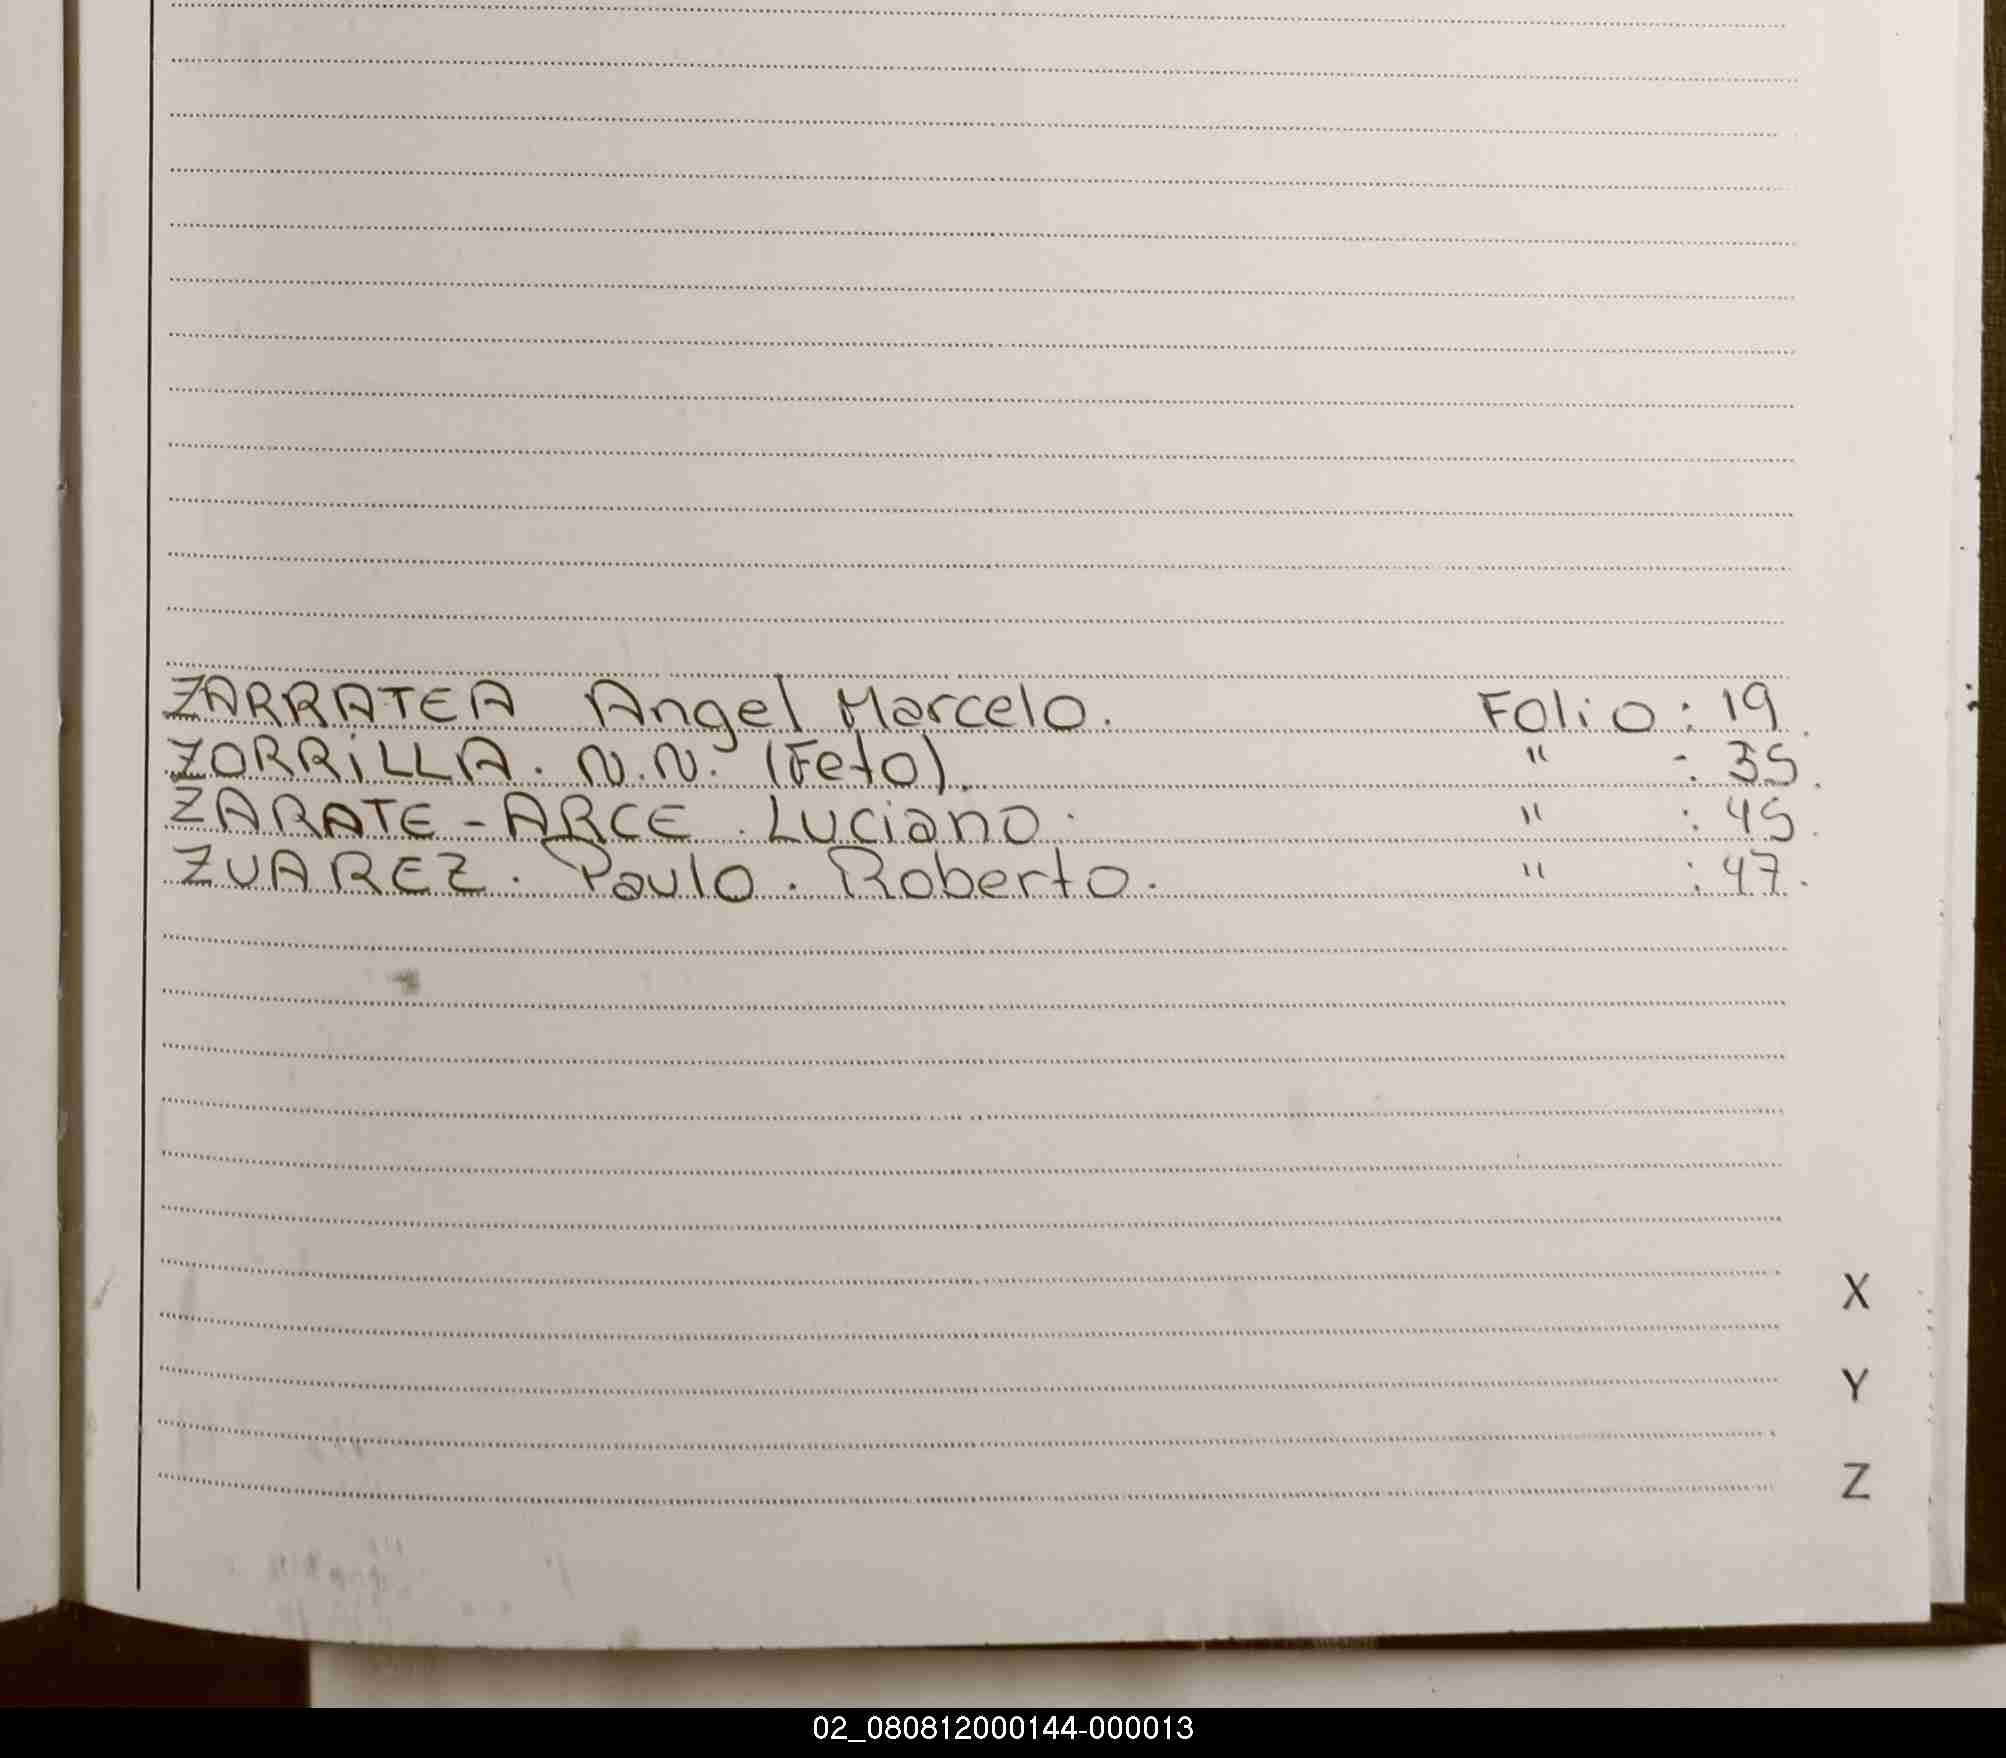 ZARRATEA Angel Marcelo. Folio : 19.
ZORRiLLA. N.N. (Feto). " : 35.
ZARATE - ARCE. Luciano. " : 45.
ZUAREZ. Paulo. Roberto. " : 47.
X
Y
Z
02_080812000144-000013